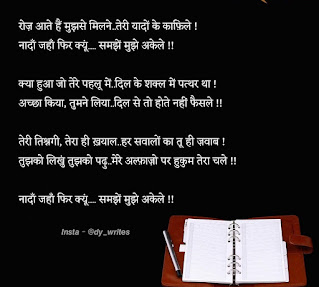 रोज़ आते हैं मुझसे मिलने..तेरी यादों के काफ़िले !
नादाँ जहाँ फिर क्यूं.... समझें मुझे अकेले !!
क्या हुआ जो तेरे पहलू में..दिल के शक्ल में पत्थर था !
अच्छा किया, तुमने लिया..दिल से तो होते नही फैसले !!
तेरी तिश्नगी, तेरा ही ख़्याल..हर सवालों का तू ही ज़वाब !
तुझको लिखुं तुझको पढु..मेरे अल्फ़ाज़ो पर हुकुम तेरा चले !!
नादाँ जहाँ फिर क्यूं.... समझें मुझे अकेले !!
Insta - @dy_writes